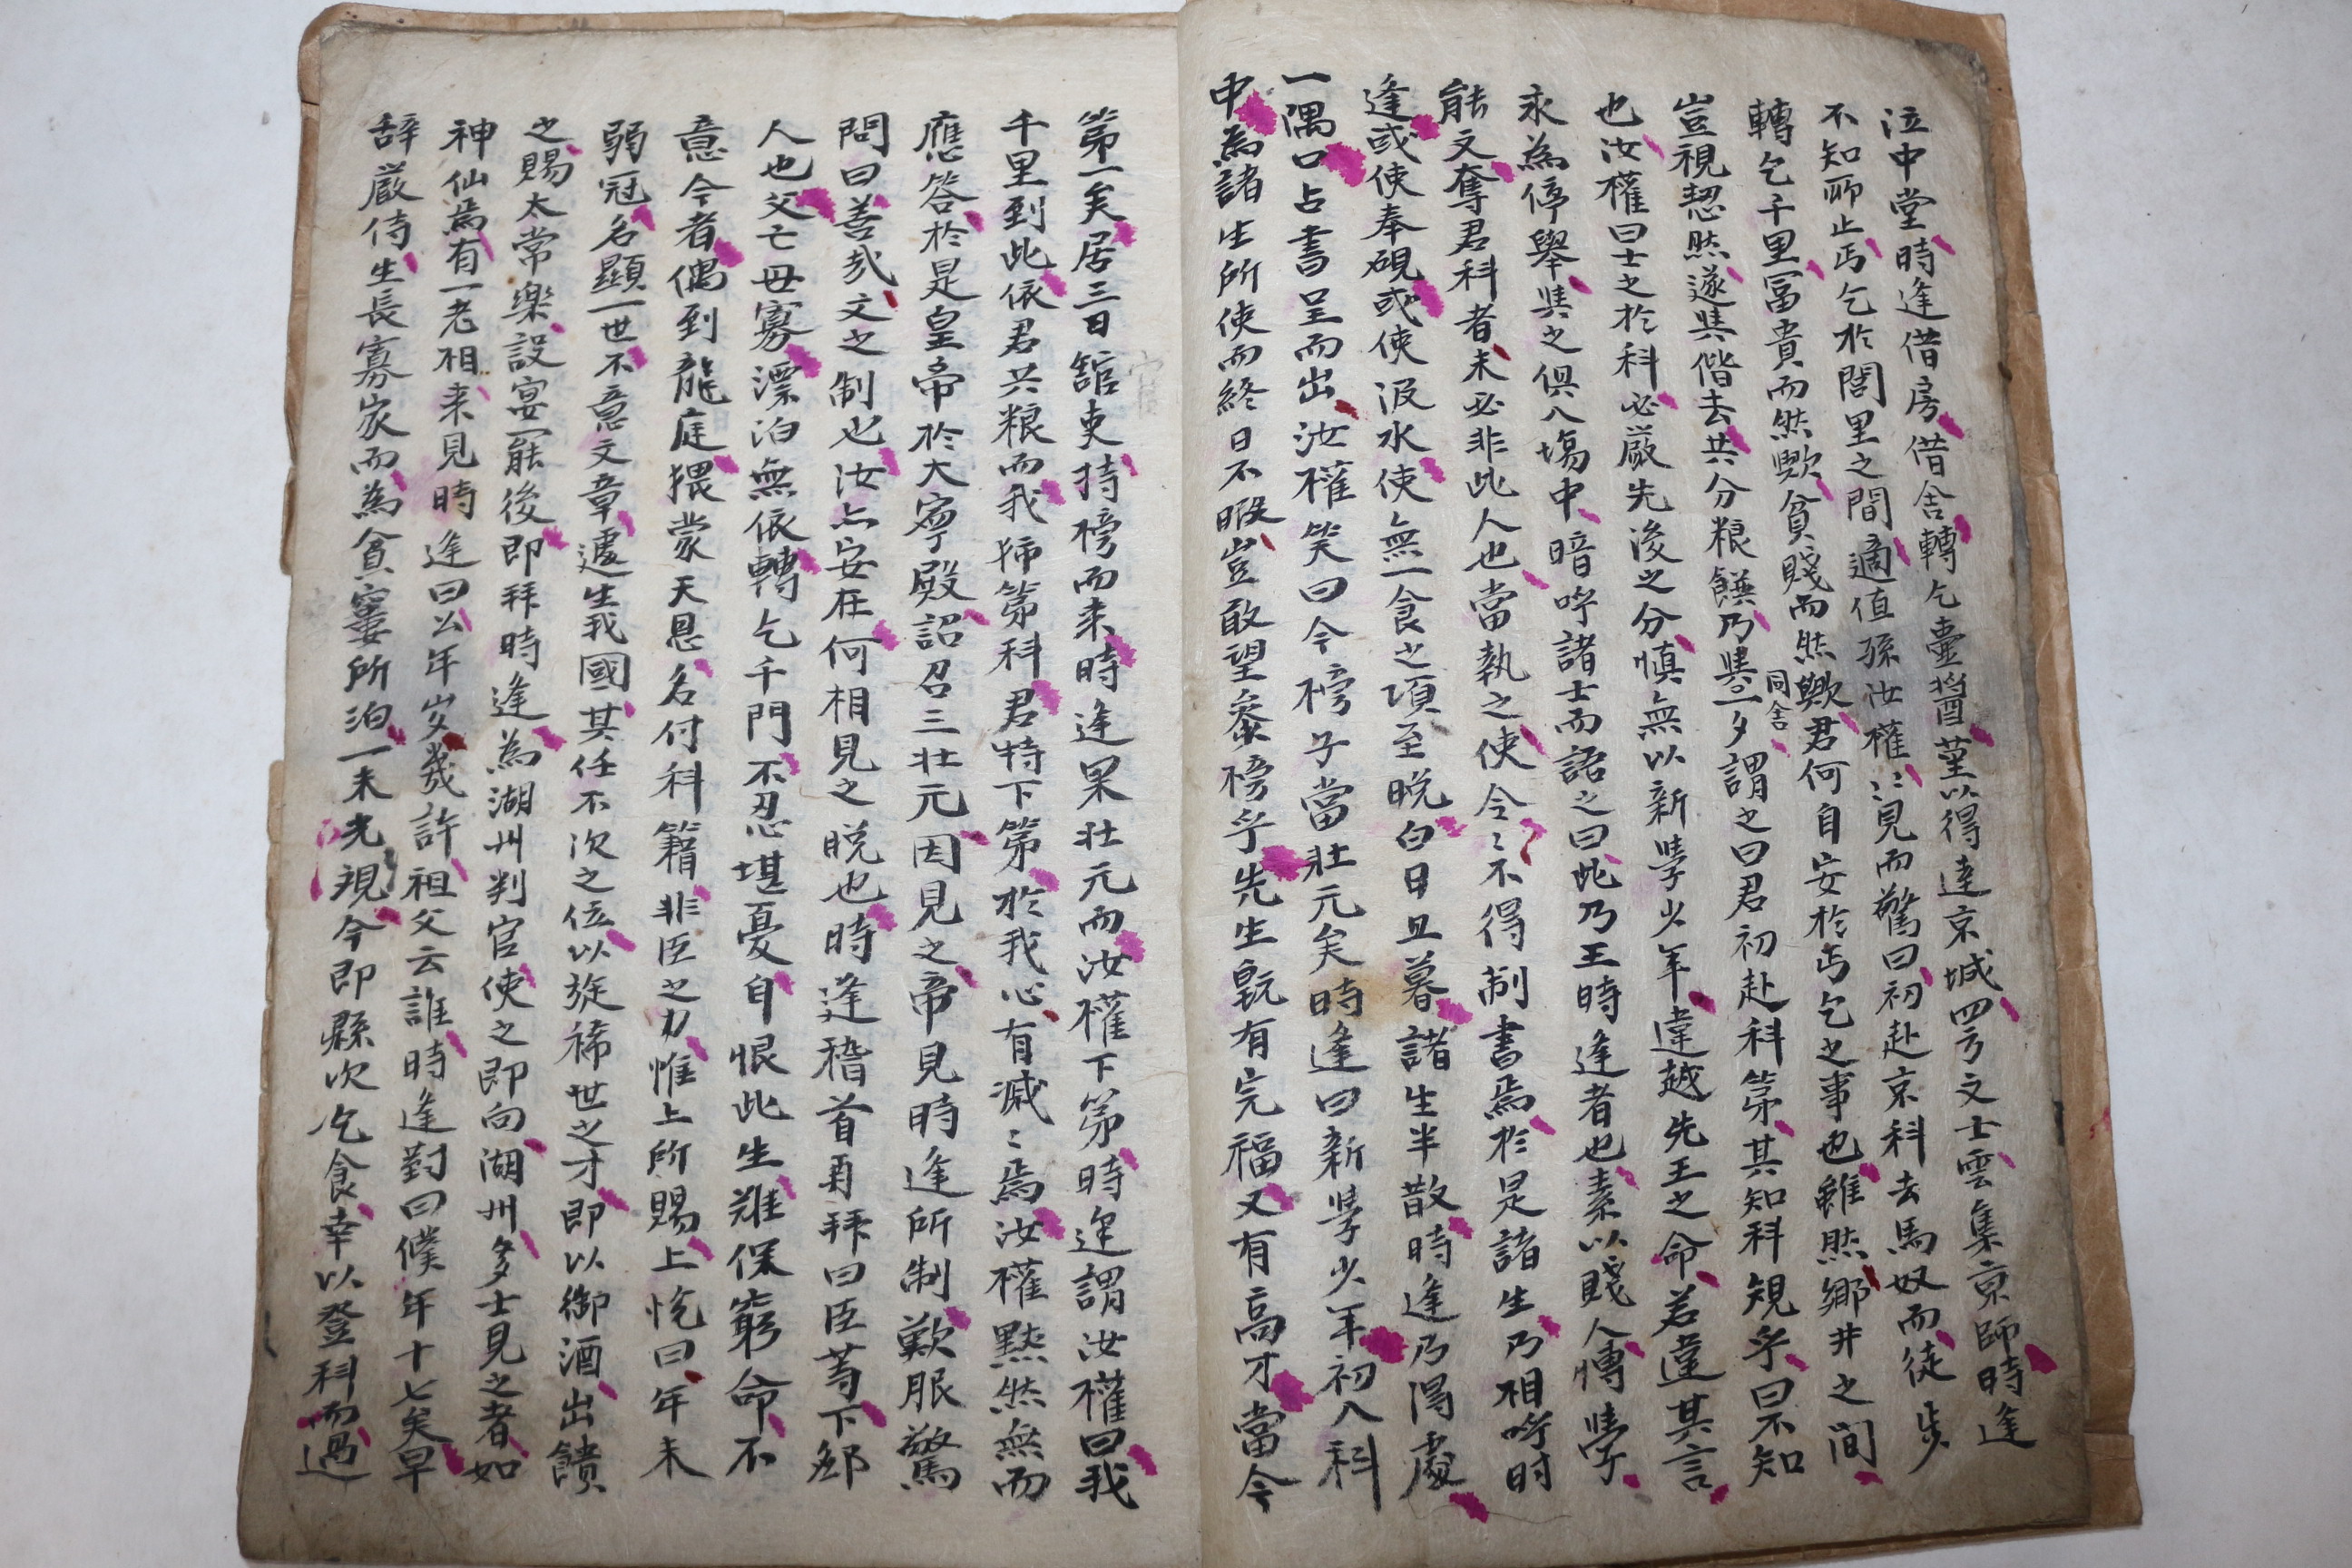 泣中堂時逢借房借舍轉乞壷醬堇以得達京城四方文士雲集京師時逢
不知所止丐乞於閭里之間適值孫汝權〻見而驚曰初赴京科去馬奴而徒步
轉乞千里冨貴而然歟貧賤而然歟君何自安於丐乞之事也雖然鄉井之間
豈視恝然遂與偕去共分粮饌乃與一夕謂之曰君初赴科第其知科規乎曰不知
同舍
也汝權曰士之於科必嚴先後之分慎無以新學少年違越先王之命若違其言
永為停舉與之俱入場中暗呼諸士而語之曰此乃王時逢者也素以賤人慱學
能文奪君科者未必非此人也當執之使令〻不得制書焉於是諸生乃相呼时
逢或使奉硯或使汲水使無一食之項至晩白日且暮諸生半散時逢乃得處
一隅口占書呈而出汝權笑曰今榜子當壯元矣時逢曰新學少年初入科
中為諸生所使而終日不暇豈敢望叅榜乎先生旣有完福又有高才當今
第一矣居三日舘吏持榜而来時逢果壯元而汝權下第時逢謂汝權曰我
千里到此依君共粮而我㱕第科君特下第於我心有減〻焉汝權黙然無而
應答於是皇帝於大寧殿詔召三壯元因見之帝見時逢所制歎服驚
問曰善㢤文之制也汝亦安在何相見之晩也時逢稽首再拜曰臣等下鄉
人也父亡母寡漂泊無依轉乞千門不忍堪憂自恨此生难保窮命不
意今者偶到龍庭猥蒙天恩名付科籍非臣之力惟上所賜上悅曰年未
弱冠名顯一世不意文章遽生我國其任不次之位以旋稀世之才即以御酒出饋
之賜太常樂設宴罷後即拜時逢為湖州判官使之即向湖州多士見之者如
神仙焉有一老相来見時逢曰公年歲幾許祖父云誰時逢對曰僕年十七矣早
辞嚴侍生長寡家而為貧寠所泊一未光親今即縣次乞食幸以登科而過